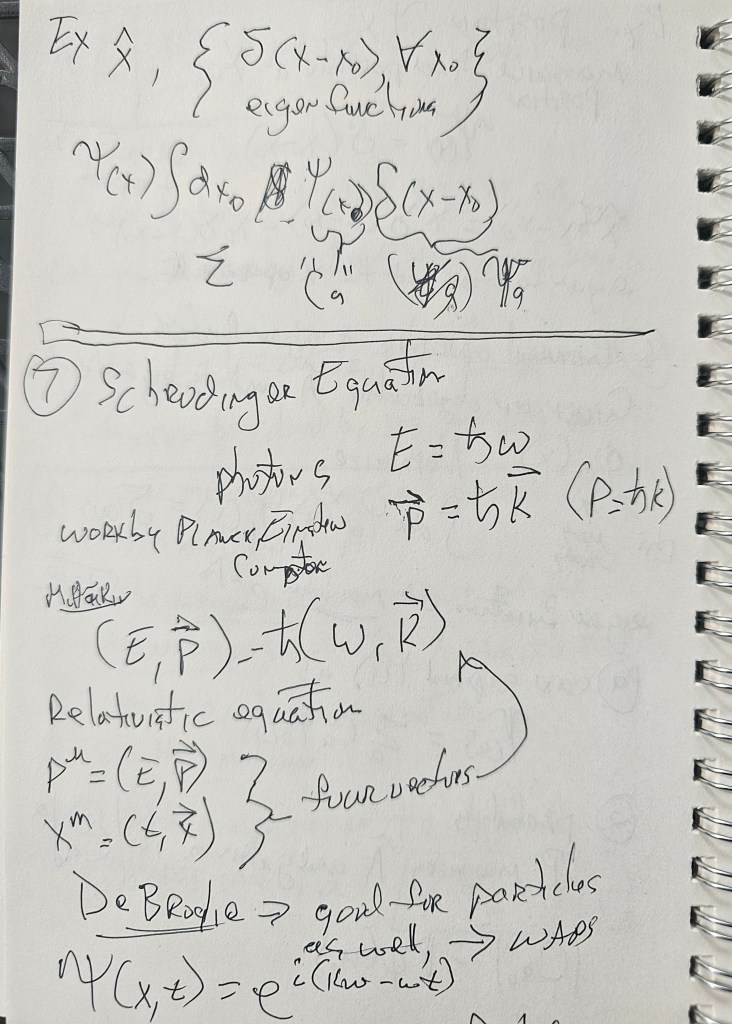 Ex x̂, { δ(x-x₀), ∀ x₀ }
eigenfunctions
Ψ(x) ∫dx₀ Ψ(x₀) δ(x-x₀)
Σ "Cₐ" Ψₐ
⑦ Schrodinger Equation
photons E = ħω
p⃗ = ħk⃗ (P=ħk)
work by Planck, Einstein
Compton
(E, p⃗) = ħ(ω, k⃗)
Relativistic equation
Pᵘ = (E, p⃗)
Xᵐ = (t, x⃗) } four vectors
De Broglie ⇒ good for particles
as well, →
Ψ(x,t) = e^i(kx - ωt)